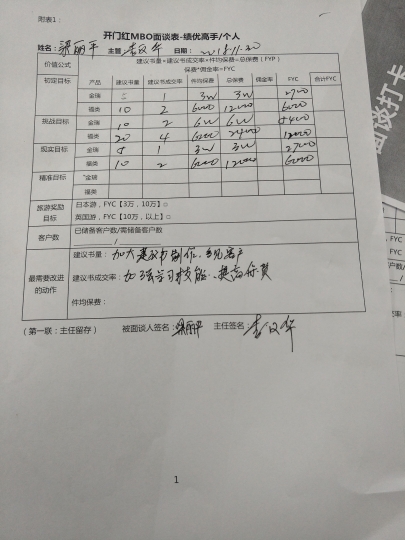 附表1：
开门红MBO面谈表-绩优高手/个人
姓名：梁丽平 主管：李文华 日期：2018.11.20
价值公式 建议书量*建议书成交率*件均保费=总保费（FYP）
保费*佣金率=FYC
初定目标 产品 建议书量 建议书成交率 件均保费 总保费 佣金率 FYC 合计FYC
金瑞 1 3W 3W 2700
福类 10 2 6000 12000 6000
挑战目标 金瑞 10 2 6W 5400
福类 20 4 6000 24000 12000
现实目标 金瑞 5 1 3W 3W 2700
福类 10 2 6000 12000 6000
精准目标 金瑞
福类
旅游奖励目标 日本游，FYC【3万，10万】□
英国游，FYC【10万，以上】□
客户数 已储备客户数/需储备客户数
/
最需要改进的动作 建议书量：加大建议书制作，多见客户
建议书成交率：加强学习技能、提高件费
件均保费：
（第一联：主任留存） 被面谈人签名：梁丽平 主任签名：李文华
1
面谈打卡